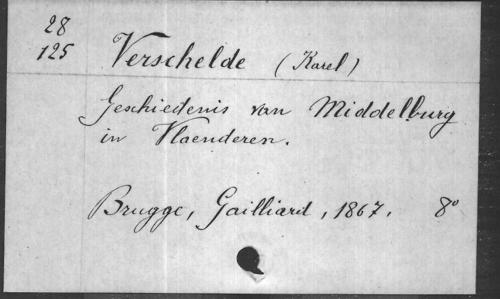 28
125
Verschelde (Karel)
Geschiedenis van Middelburg
in Vlaenderen.
Brugge, Gailliard, 1867. 8°